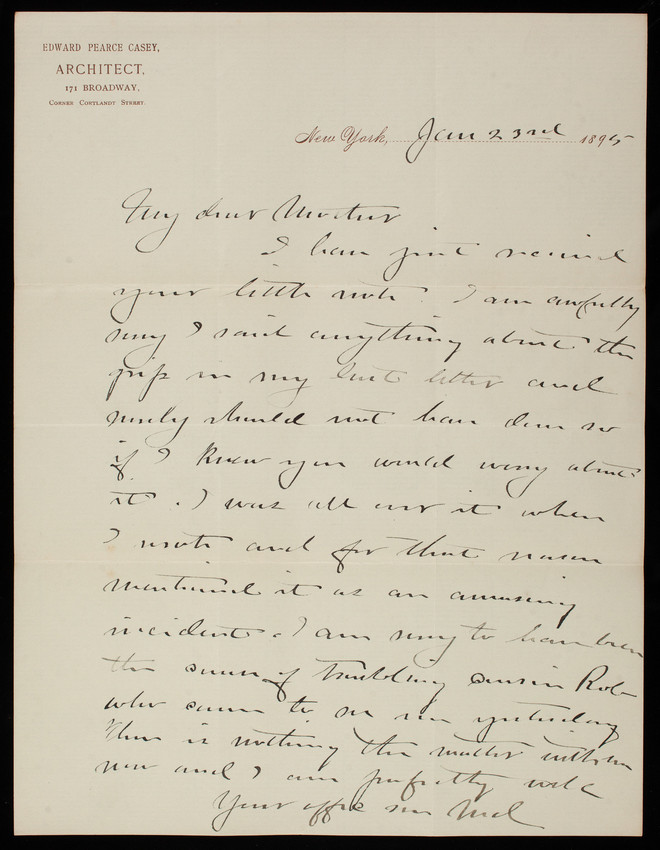 EDWARD PEARCE CASEY,
ARCHITECT,
171 BROADWAY,
CORNER CORTLANDT STREET.
New York, Jan 23rd 1895
My dear Mother
I have just received
your little note. I am awfully
sorry I said anything about the
grip in my last letter and
surely should not have done so
if I knew you would worry about
it. I was all over it when
I wrote and for that reason
mentioned it as an amusing
incident. I am sorry to have been
the cause of troubling Cousin Rob
who came to see me yesterday
There is nothing the matter with me
now and I am perfectly well
Your affte son Ned